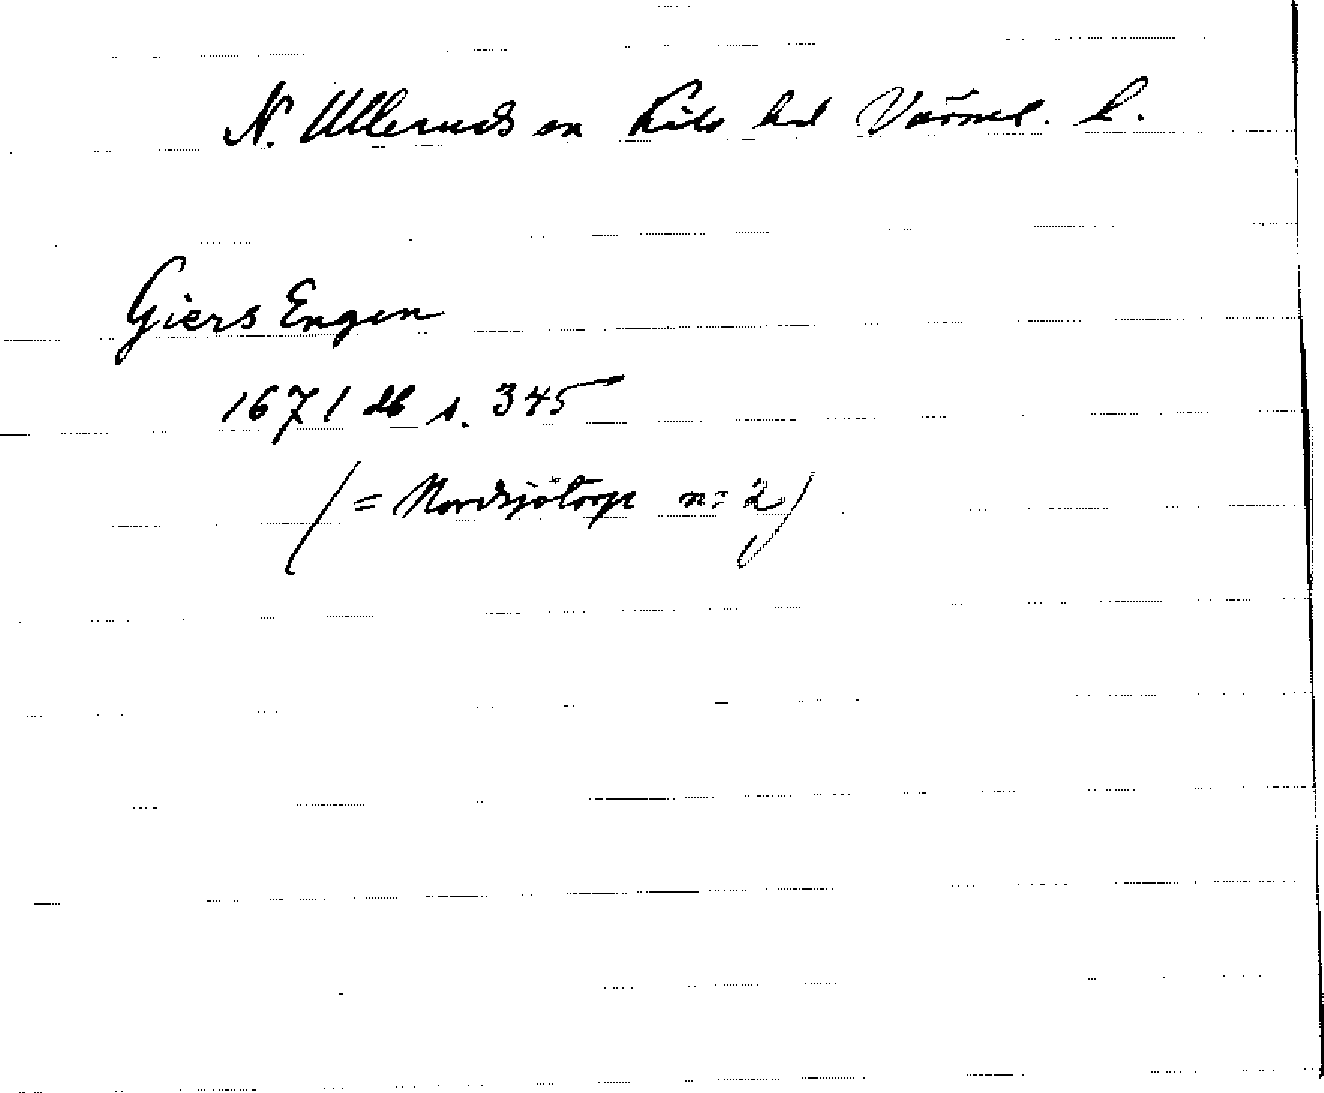 N. Ulleruds sn Kils hd Värml. l.
Giers Engen
1671 db s. 345
(= Nordsjötorp n: 2)